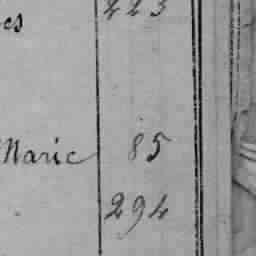 223
es
Marie 85
294